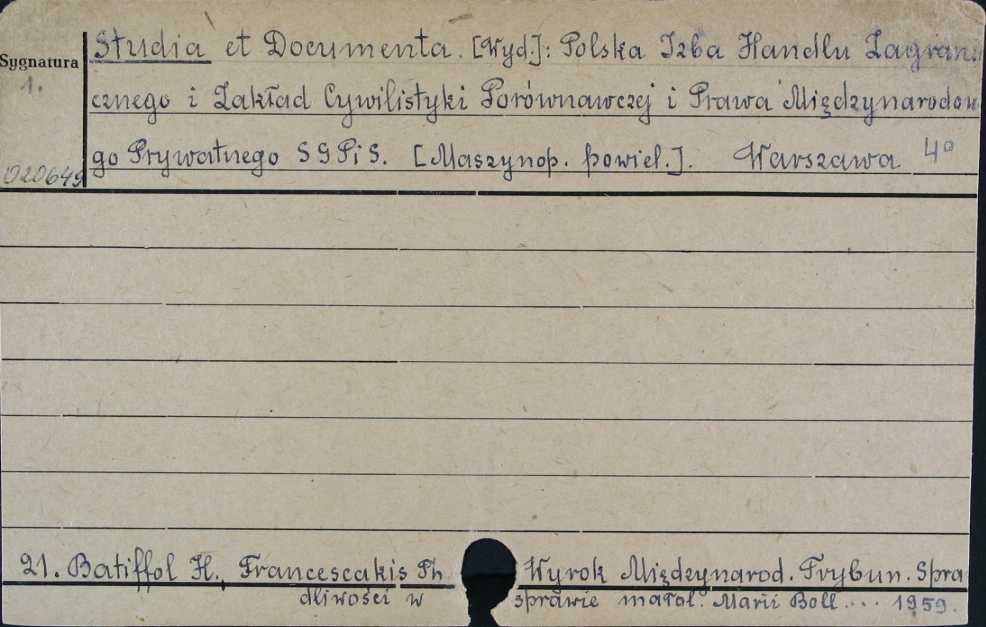 Studia et Documenta. [Wyd]: Polska Izba Handlu Zagrani
Sygnatura
1.
cznego i Zakład Cywilistyki Porównawczej i Prawa Międzynarodow
go Prywatnego SGPiS. [Maszynop. powiel.]. Warszawa 4°
020649
21. Batiffol H., Francescakis Ph. Wyrok Międzynarod. Trybun. Spra
dliwości w sprawie małol. Marii Boll.... 1959.